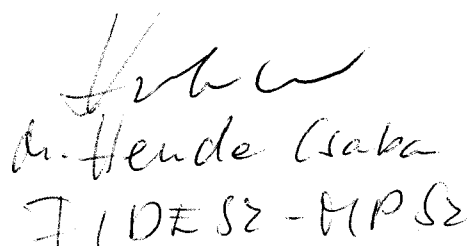 Dr. Hende Csaba
FIDESZ-MPSZ